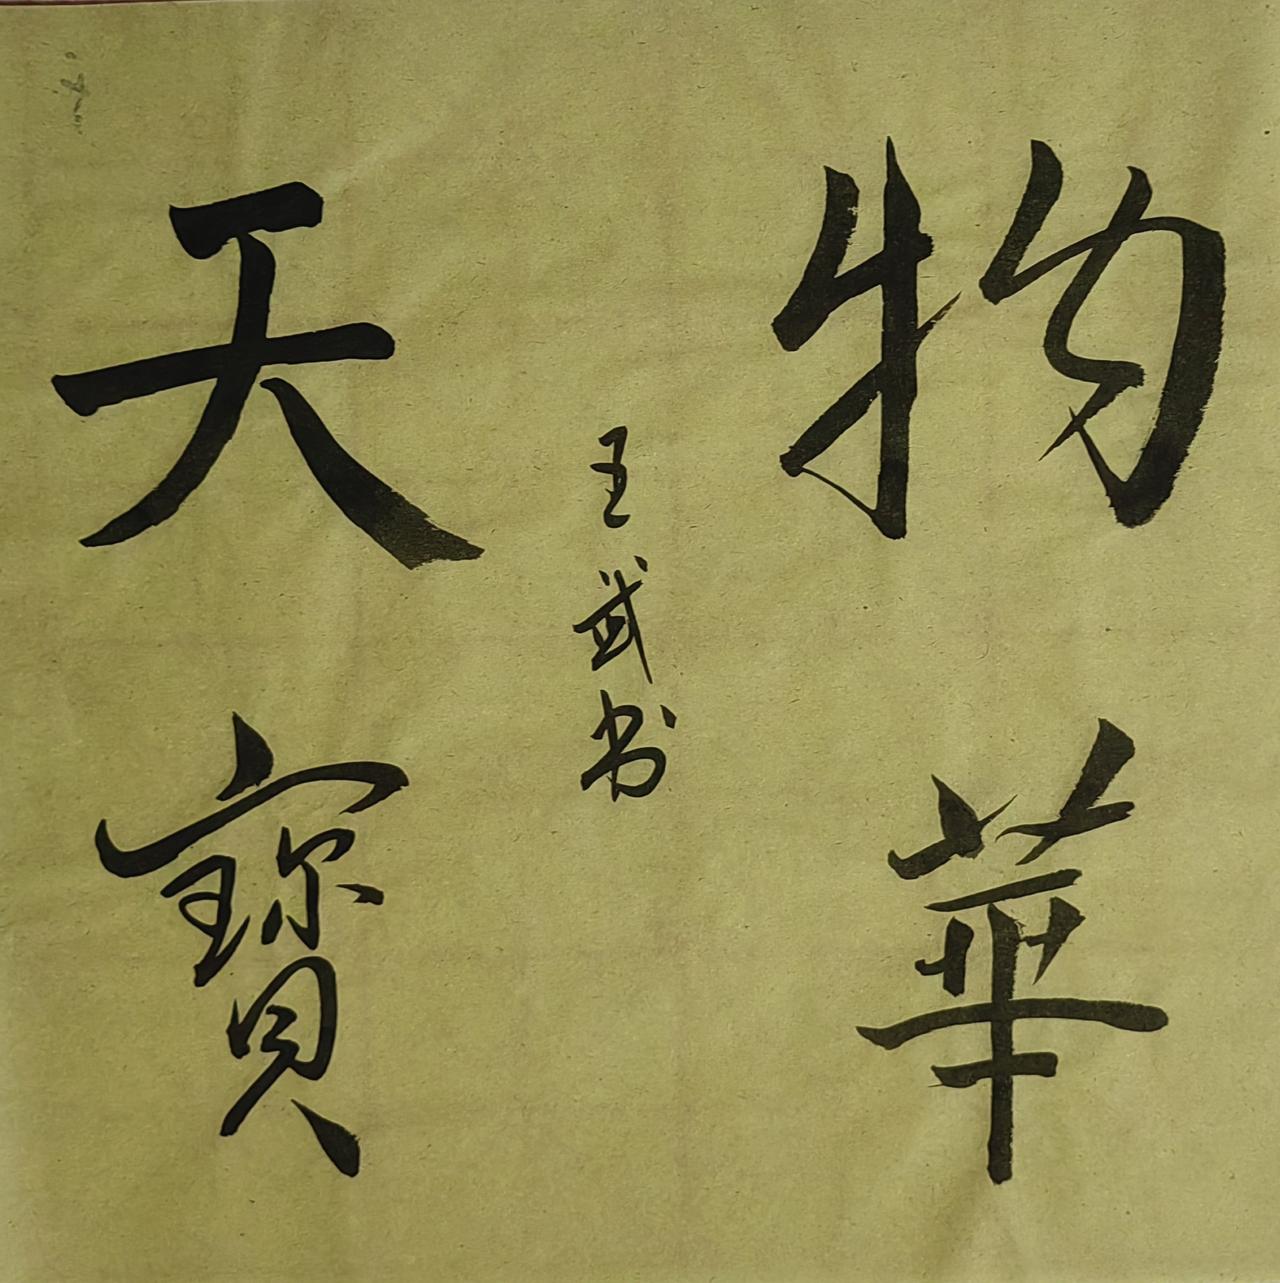 物華
天寶
王武书